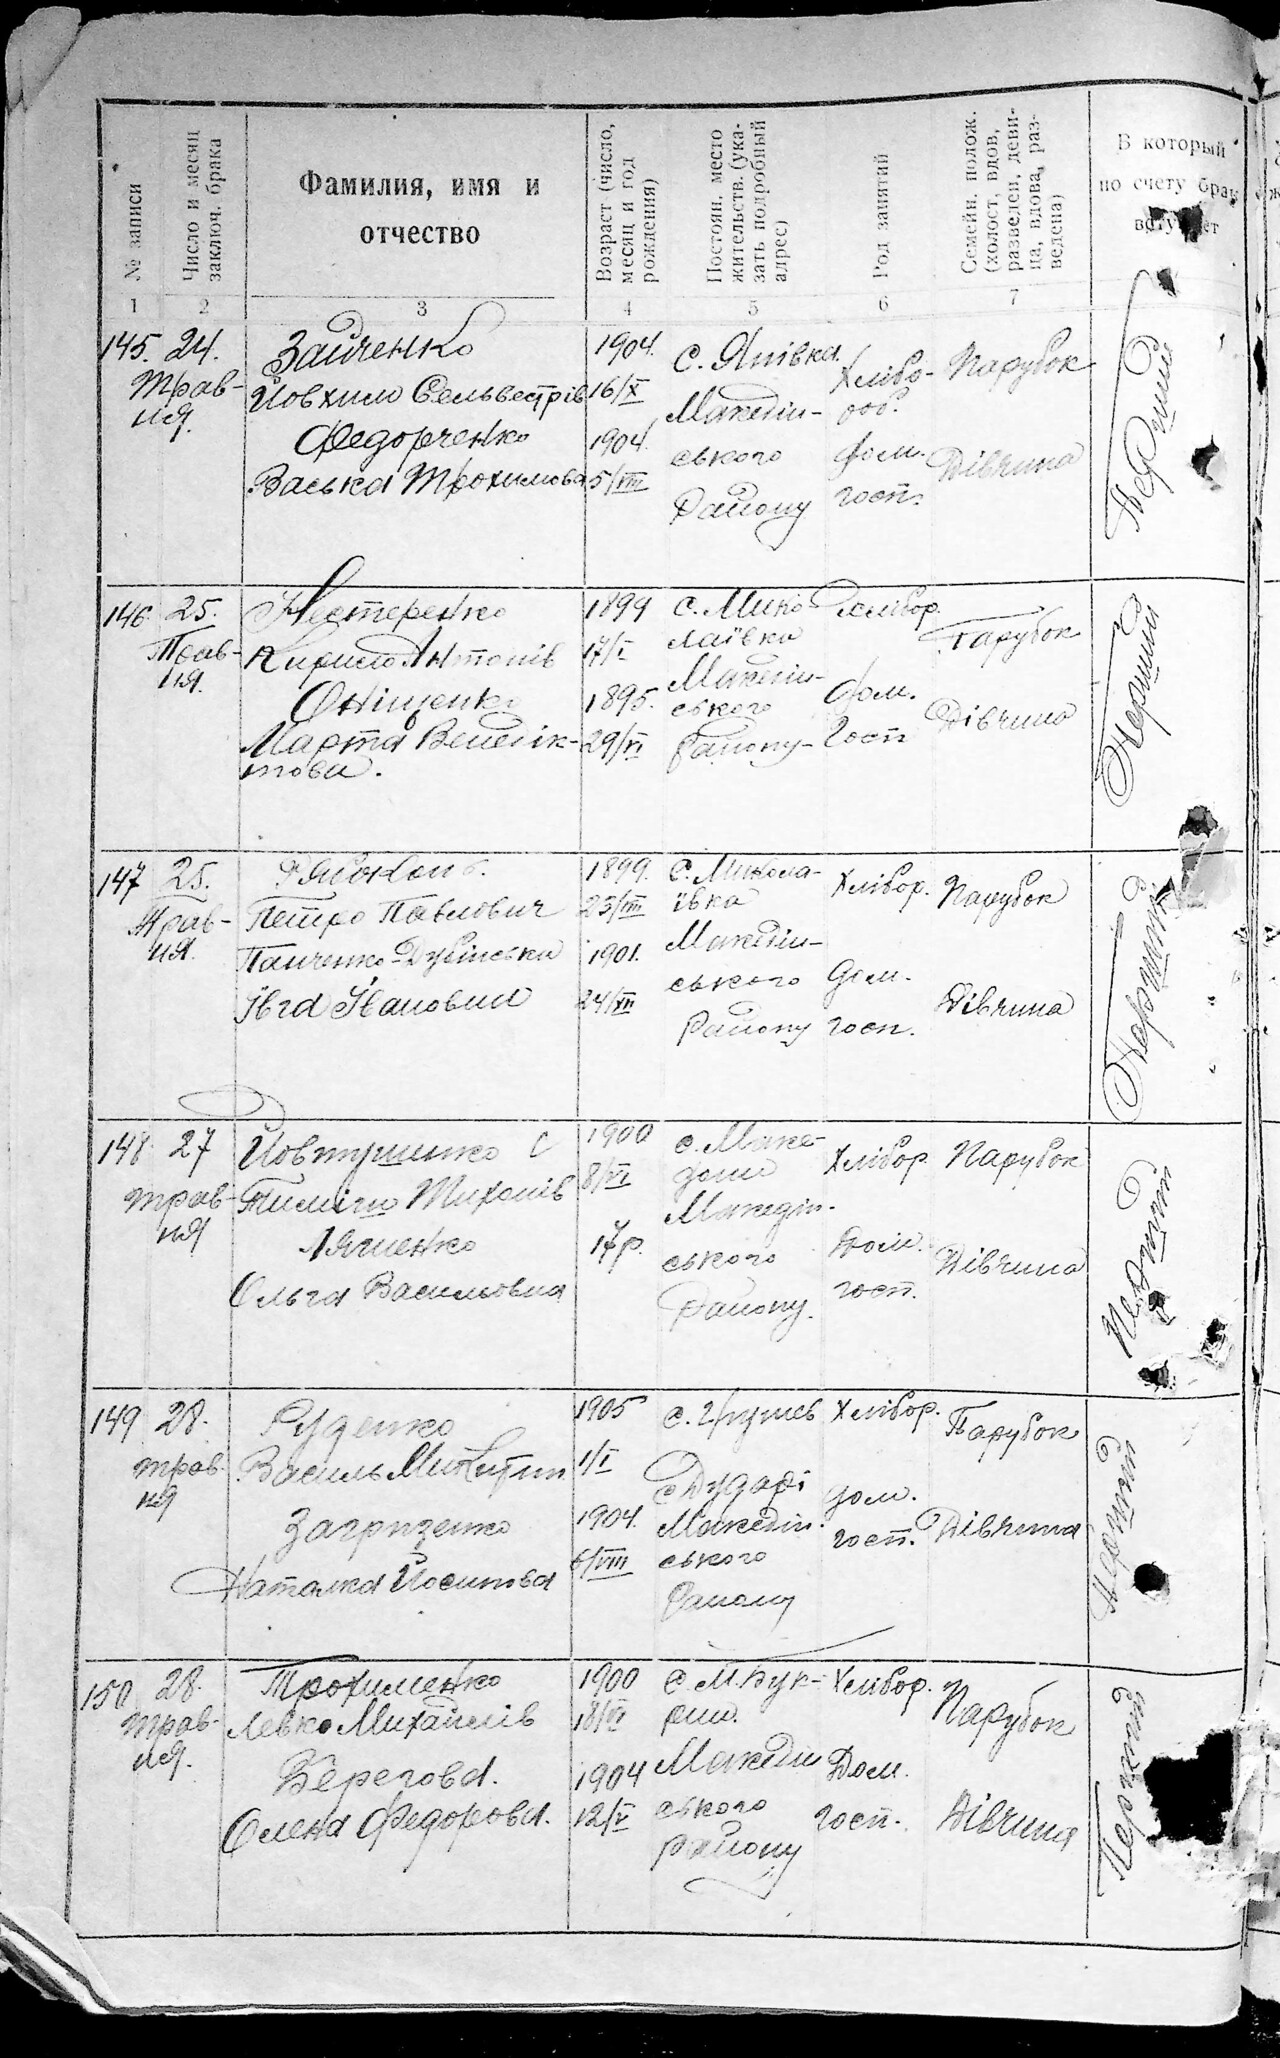 № записи
Число и месяц заключ. брака
Фамилия, имя и
отчество
Возраст (число, месяц и год рождения)
Постоян. место жительств. (указать подробный адрес)
Род занятий
Семейн. полож. (холост, вдов, разведен, девица, вдова, разведена)
В который
по счету брак
1 2 3 4 5 6 7
145. 24. Трав-
ня.
Зайченко
Йовхим Сельвестрів
Федорченко
Васька Трохимова
1904.
16/X
1904.
5/VIII
с. Япівка
Македін-
ського
Району
Хлібо-
роб.
дом.
госп.
Парубок
Дівчина
Перший
146. 25.
Трав-
ня.
Нестеренко
Кирило Антонів
Оніщенко
Марта Венедік-
това.
1899
17/I
1895.
29/VI
с. Мико
лаївка
Македін-
ського
Району
Хлібор.
дом.
Госп
Парубок
Дівчина
Перший
147 25.
Трав-
ня.
Рябоконь.
Петро Павлович
Панченко-Дубінська
Івга Івановна
1899.
23/VIII
1901.
24/XII
с. Микола-
ївка
Македін-
ського
Району
Хлібор.
дом.
госп.
Парубок
Дівчина
Перший
148 27
трав-
ня
Йовтушенко С
Тиміш Тихонів
Ляшенко
Ольга Василовна
1900
8/VI
17 р.
с. Маке-
дони
Македін-
ського
Району.
Хлібор
Дом.
госп.
Парубок
Дівчина
Перший
149 28.
трав-
ня
Руденко
Василь Микитин
Загризенко
Наталка Йосипова
1905
1/I
1904.
6/VIII
с. Грушев
с Дударі
Македін-
ського
Району
Хлібор.
дом.
госп.
Парубок
Дівчина
Перший
150 28.
трав-
ня.
Трохименко
Левко Михайлів
Берегова.
Олена Федорова.
1900
18/VI
1904
12/V
с. М. Бук-
рин.
Македін
ського
Району
Хлібор.
Дом.
госп.
Парубок
Дівчина
Перший